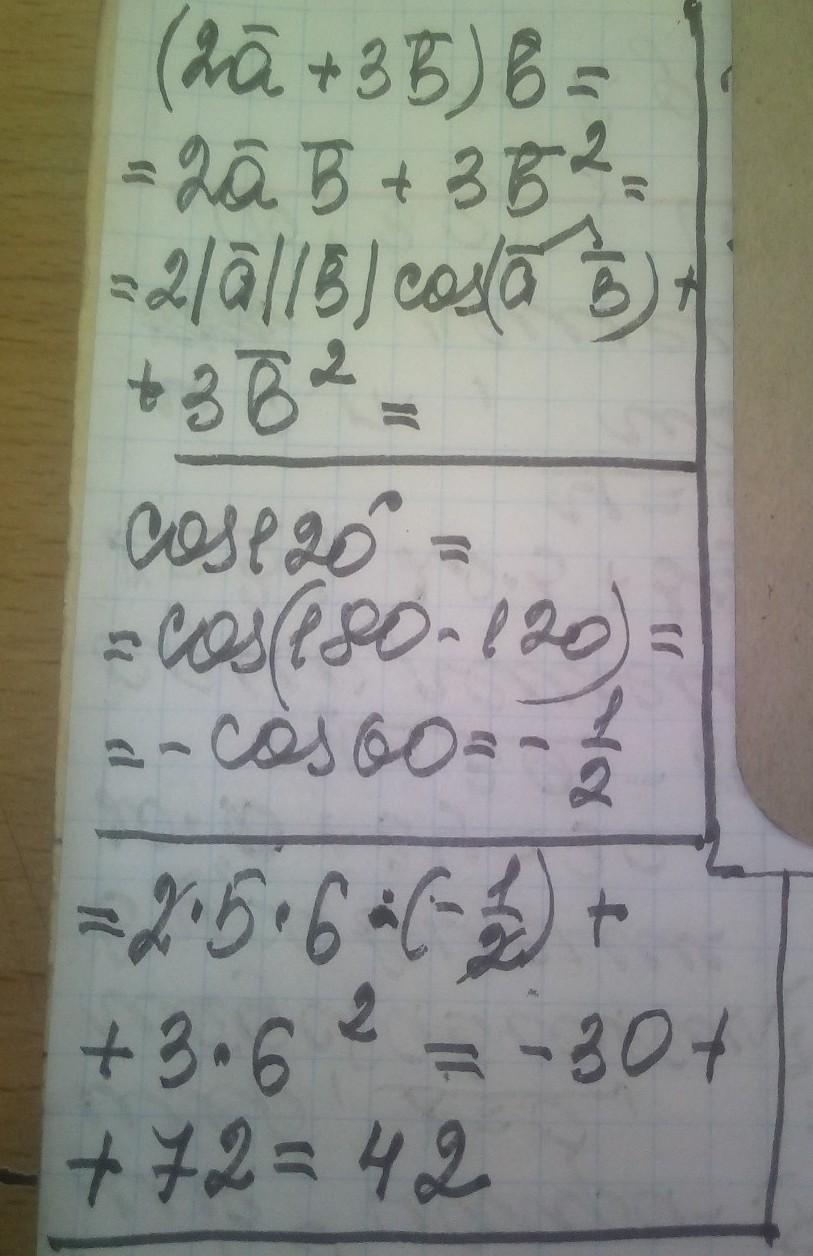 (2a̅ + 3b̅) b̅ =
= 2a̅ b̅ + 3b̅² =
= 2|a̅||b̅| cos(a̅ b̅) +
+ 3b̅² =
cos120° =
= cos(180 - 120) =
= - cos60 = - 1/2
= 2·5·6·(- 1/2) +
+ 3·6² = -30 +
+ 72 = 42